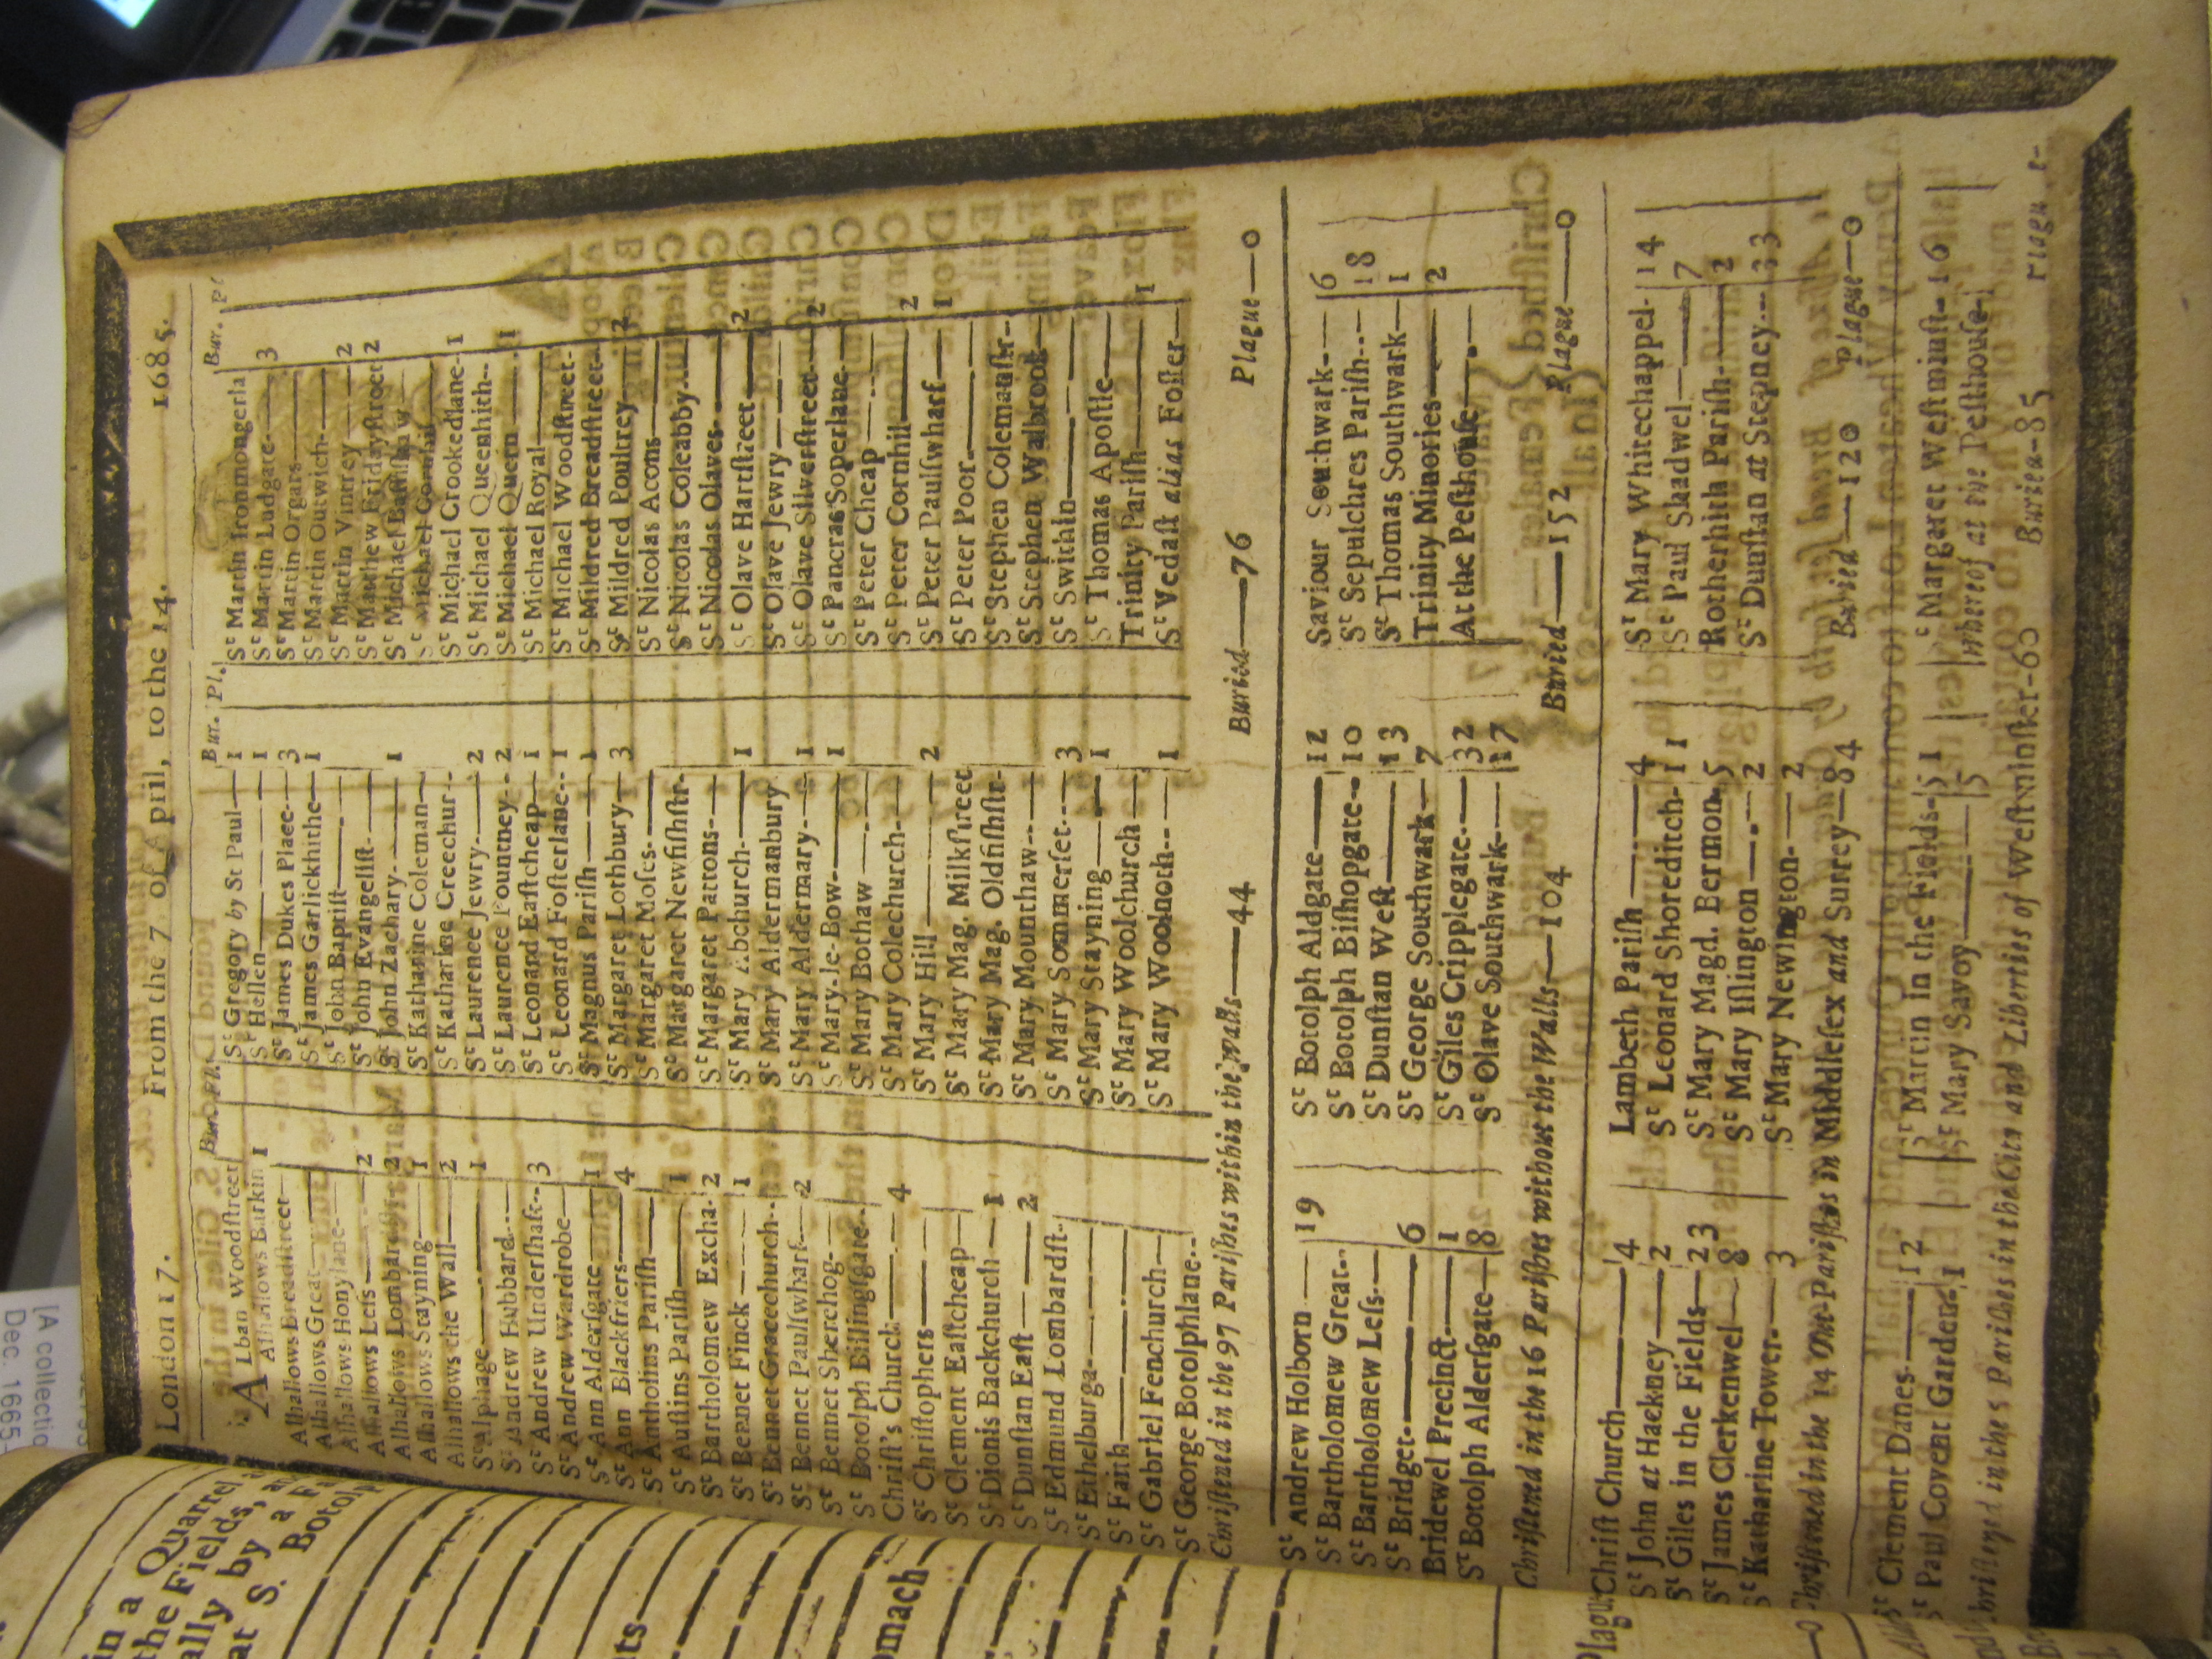 London 17. From the 7 of April, to the 14. 1685.
Bur. Pl.
A Lban Woodſtreet
Alhallows Barkin 1
Alhallows Breadſtreet
Alhallows Great
Alhallows Honylane
Alhallows Leſs 2
Alhallows Lombardſtreet 2
Alhallows Stayning 1
Alhallows the Wall 2
St Alphage 1
St Andrew Hubbard
St Andrew Underſhaft 3
St Andrew Wardrobe
St Ann Alderſgate 1
St Ann Blackfriers 4
St Antholins Pariſh
St Auſtins Pariſh 1
St Bartholomew Excha. 2
St Bennet Finck 1
St Bennet Gracechurch
St Bennet Paulſwharf 2
St Bennet Sherehog
St Botolph Billingſgate
Chriſt's Church 4
St Chriſtophers
St Clement Eaſtcheap
St Dionis Backchurch 1
St Dunſtan Eaſt 2
St Edmund Lombardſt.
St Ethelburga
St Faith
St Gabriel Fenchurch
St George Botolphlane
Bur. Pl.
St Gregory by St Paul 1
St Hellen 1
St James Dukes Place 3
St James Garlickhithe 1
St John Baptiſt
St John Evangeliſt
St John Zachary 1
St Katharine Coleman
St Katharine Creechur
St Laurence Jewry 2
St Laurence Pountney 2
St Leonard Eaſtcheap 1
St Leonard Foſterlane 1
St Magnus Pariſh 1
St Margaret Lothbury 3
St Margaret Moſes
St Margaret Newfiſhſtr
St Margaret Pattons
St Mary Abchurch 1
St Mary Aldermanbury
St Mary Aldermary 1
St Mary-le-Bow 1
St Mary Bothaw
St Mary Colechurch
St Mary Hill 2
St Mary Mag. Milkſtreet
St Mary Mag. Oldfiſhſtr
St Mary Mounthaw
St Mary Sommerſet 3
St Mary Stayning 1
St Mary Woolchurch
St Mary Woolnoth 1
Bur.
St Martin Ironmongerla
St Martin Ludgate 3
St Martin Orgars
St Martin Outwich
St Martin Vintrey 2
St Matthew Fridayſtreet 2
St Michael Baſſiſhaw
St Michael Cornhil
St Michael Crookedlane 1
St Michael Queenhith
St Michael Quern 1
St Michael Royal
St Michael Woodſtreet
St Mildred Breadſtreet
St Mildred Poultrey 2
St Nicolas Acons
St Nicolas Coleabby
St Nicolas Olaves
St Olave Hartſtreet 2
St Olave Jewry
St Olave Silverſtreet 2
St Pancras Soperlane
St Peter Cheap
St Peter Cornhil 2
St Peter Paulſwharf 1
St Peter Poor
St Stephen Colemanſtr
St Stephen Walbrook
St Swithin
St Thomas Apoſtle
Trinity Pariſh 1
St Vedaſt alias Foſter
Chriſtened in the 97 Pariſhes within the Walls 44 Buried 76 Plague 0
St Andrew Holborn 19
St Bartholomew Great
St Bartholomew Leſs
St Bridget 6
Bridewel Precinct 1
St Botolph Alderſgate 8
St Botolph Aldgate 12
St Botolph Biſhopgate 10
St Dunſtan Weſt 13
St George Southwark 7
St Giles Cripplegate 32
St Olave Southwark 17
Saviour Southwark 16
St Sepulchres Pariſh 18
St Thomas Southwark 1
Trinity Minories 2
At the Peſthouſe
Chriſtened in the 16 Pariſhes without the Walls 104 Buried 152 Plague 0
Chriſt Church 4
St John at Hackney 2
St Giles in the Fields 23
St James Clerkenwel 8
St Katharine Tower 3
Lambeth Pariſh 4
St Leonard Shoreditch 11
St Mary Magd. Bermon. 5
St Mary Iſlington 2
St Mary Newington 2
St Mary Whitechappel 14
St Paul Shadwel 7
Rotherhith Pariſh 2
St Dunſtan at Stepney 33
Chriſtened in the 14 Out-Pariſhes in Middleſex and Surrey 84 Buried 120 Plague 0
St Clement Danes 12
St Paul Covent Garden 1
St Martin in the Fields 51
St Mary Savoy 5
Margaret Weſtminſt. 16
whereof at the Peſthouſe
Chriſtened in the 5 Pariſhes in the City and Liberties of Weſtminſter 60 Buried 85 Plague
in a Quarrel
the Fields,
ally by a
at S. Botolp
omach
Plague
[A collectio
Dec. 1665-